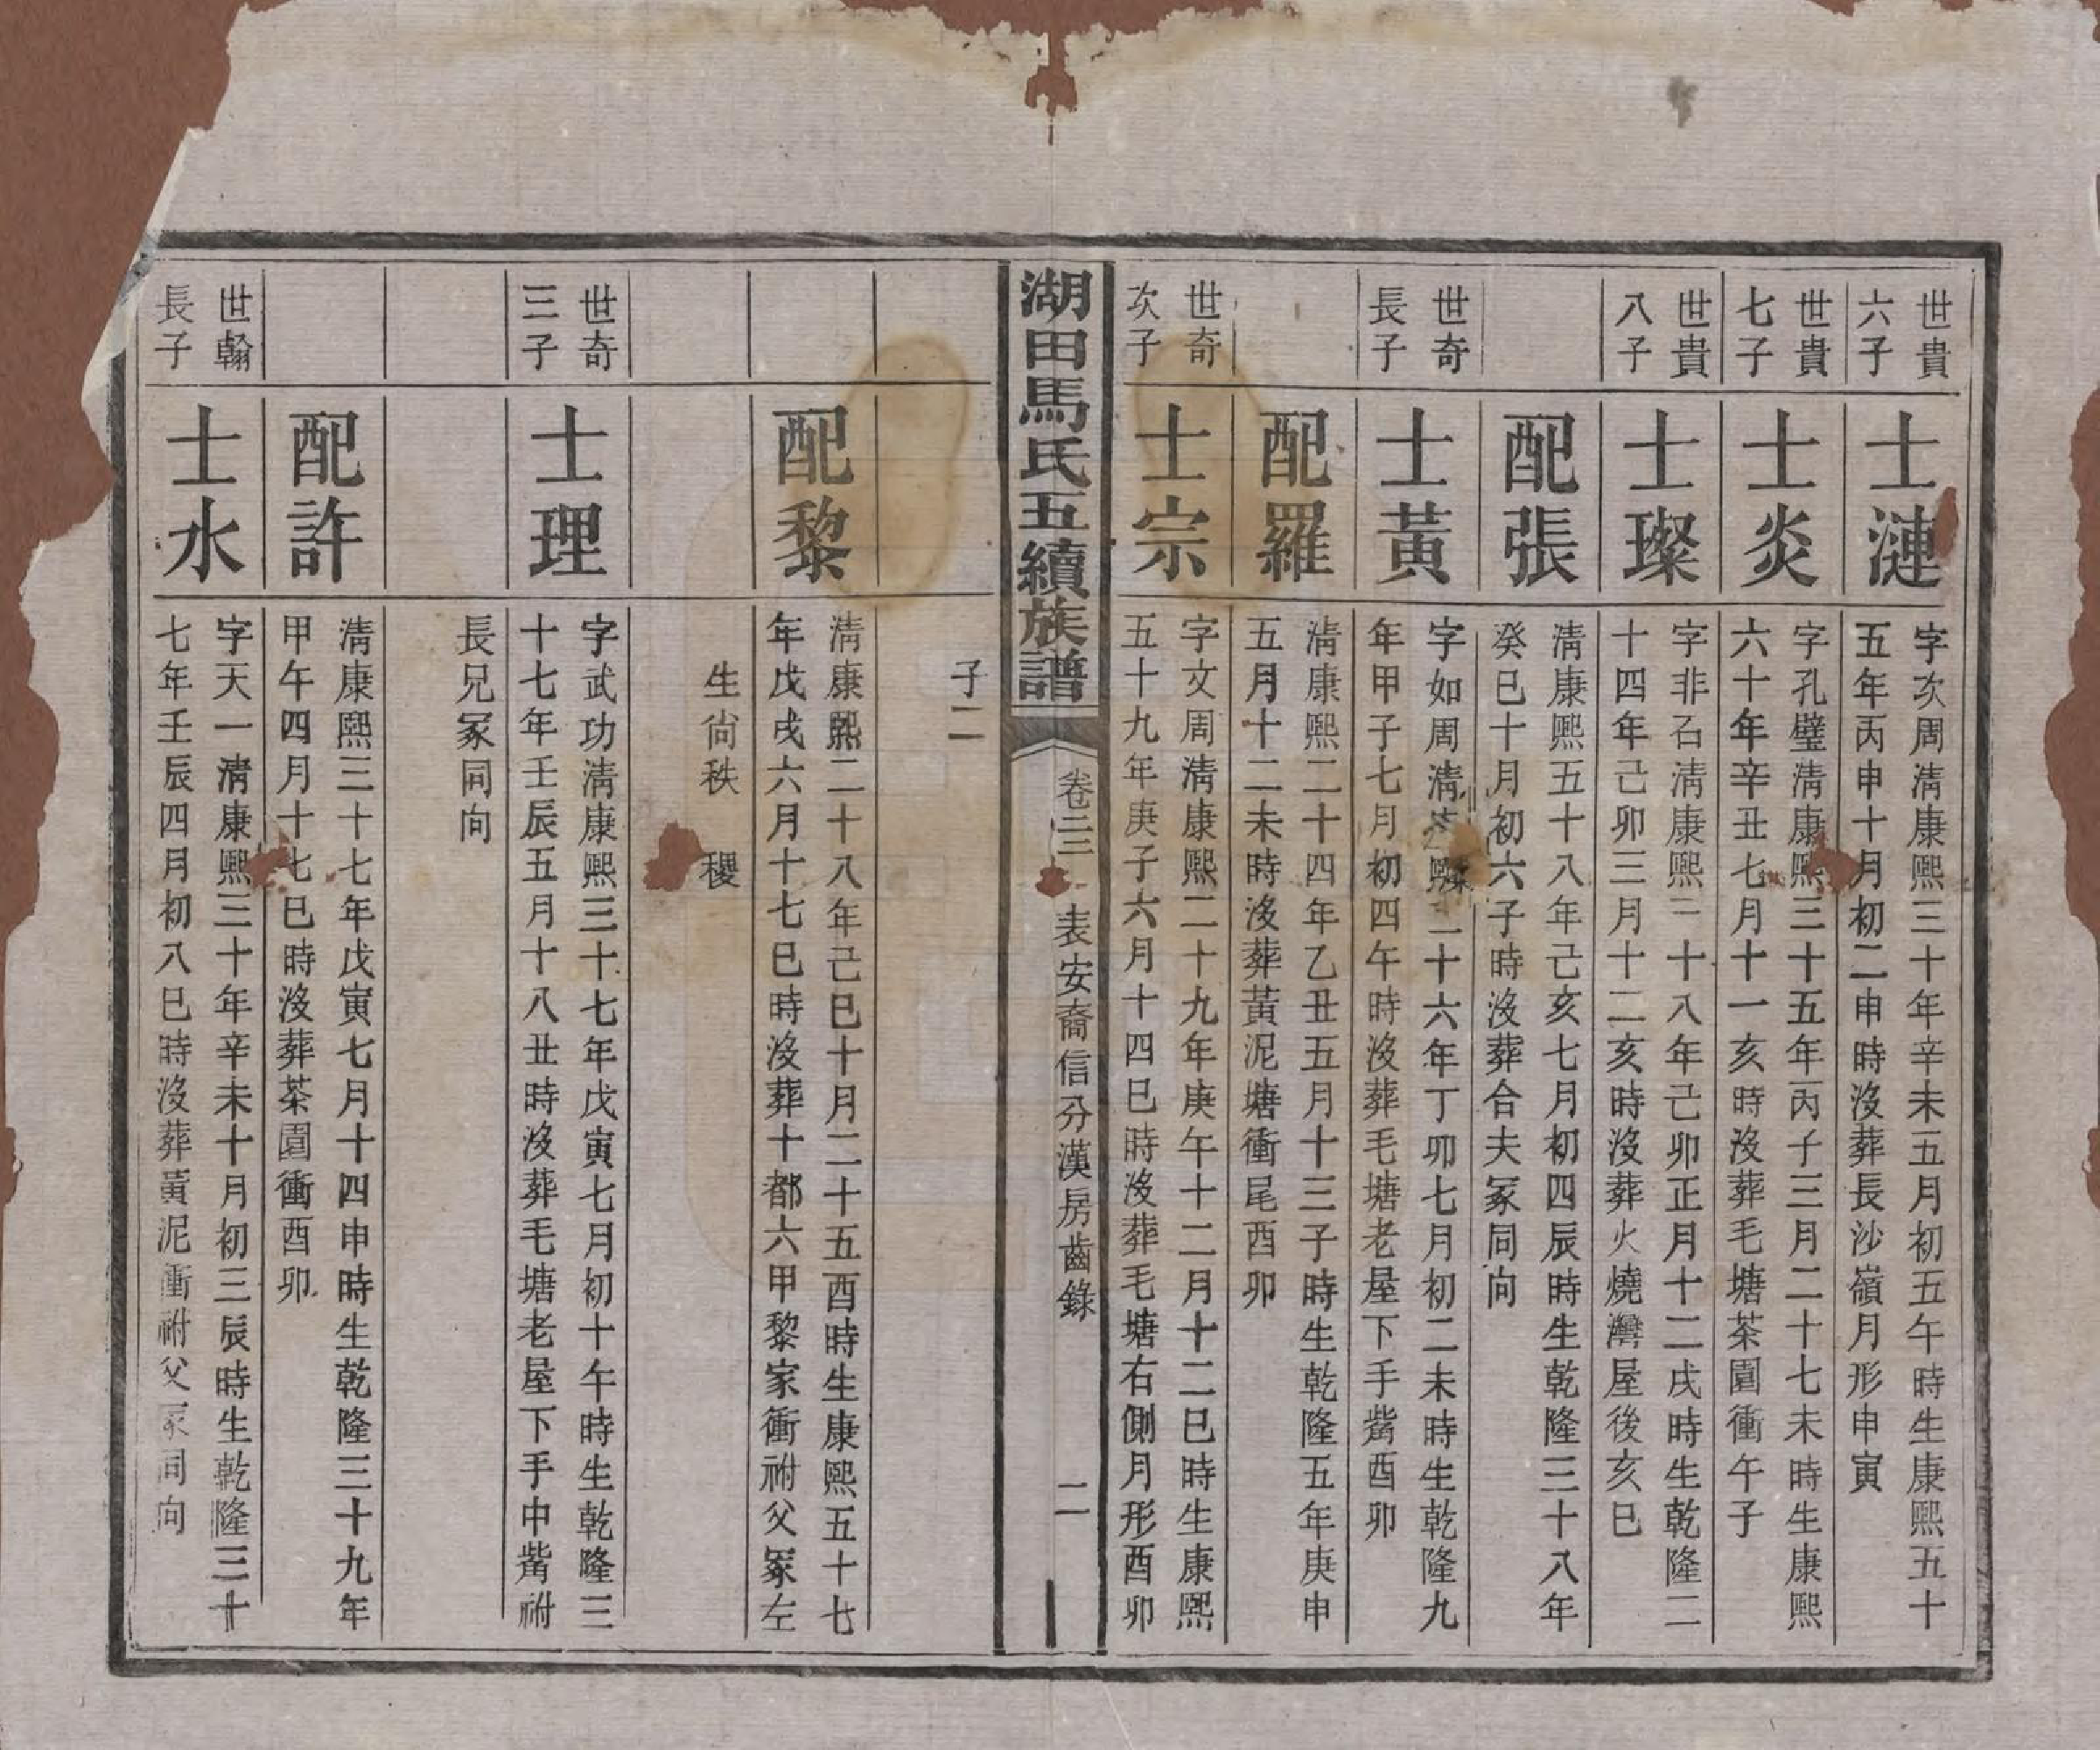 世貴
六子
士漣
字次周清康熙三十年辛未五月初五午時生康熙五十
五年丙申十月初二申時沒葬長沙嶺月形申寅
世貴
七子
士炎
字孔璧清康熙三十五年丙子三月二十七未時生康熙
六十年辛丑七月十一亥時沒葬毛塘茶園衝午子
世貴
八子
士璨
字非石清康熙二十八年己卯正月十二戌時生乾隆二
十四年己卯三月十二亥時沒葬火燒灣屋後亥巳
配張
清康熙五十八年己亥七月初四辰時生乾隆三十八年
癸巳十月初六子時沒葬合夫冢同向
世奇
長子
士黃
字如周清熙二十六年丁卯七月初二未時生乾隆九
年甲子七月初四午時沒葬毛塘老屋下手嘴酉卯
配羅
清康熙二十四年乙丑五月十三子時生乾隆五年庚申
五月十二未時沒葬黃泥塘衝尾酉卯
世奇
次子
士宗
字文周清康熙二十九年庚午十二月十二巳時生康熙
五十九年庚子六月十四巳時沒葬毛塘右側月形酉卯
湖田馬氏五續族譜
卷三 表安裔信分漢房齒錄
二
子二
配黎
清康熙二十八年己巳十月二十五酉時生康熙五十七
年戊戌六月十七巳時沒葬十都六甲黎家衝祔父冢左
生尚秩 稷
世奇
三子
士理
字武功清康熙三十七年戊寅七月初十午時生乾隆三
十七年壬辰五月十八丑時沒葬毛塘老屋下手中嘴祔
長兄冢同向
配許
清康熙三十七年戊寅七月十四申時生乾隆三十九年
甲午四月十七巳時沒葬茶園衝酉卯
世翰
長子
士水
字天一清康熙三十年辛未十月初三辰時生乾隆三十
七年壬辰四月初八巳時沒葬黃泥衝祔父冢同向